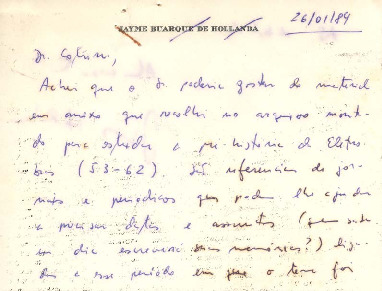 26/01/89
JAYME BUARQUE DE HOLLANDA
Dr. Cotrim,
Achei que o Sr. poderia gostar do material
em anexo que recolhi no arquivo monta-
do para estudar a pré-história da Eletro-
bras (53-62). São referências de jor-
nais e periódicos que podem lhe ajudar
a precisar datas e assuntos (quem sabe
um dia escreverá suas memórias?) liga-
dos a esse período em que o tema foi